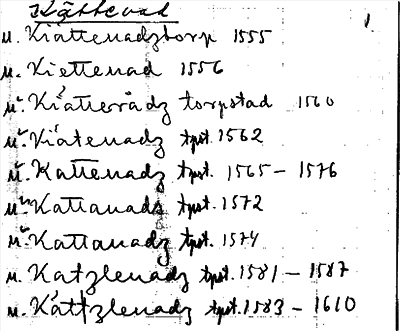 Kättevad
1
u. Kiattenadztorp 1555
u. Kiettenad 1556
u. Kiätterådz torpstad 1560
u. Kiatenadz tpst. 1562
u. Kattenadz tpst. 1565 – 1576
u. Kattanads tpst. 1572
u. Kattanadz tpst. 1574
u. Katzlenadz tpst. 1581 – 1587
u. Kättzlenadz tpst. 1583 – 1610